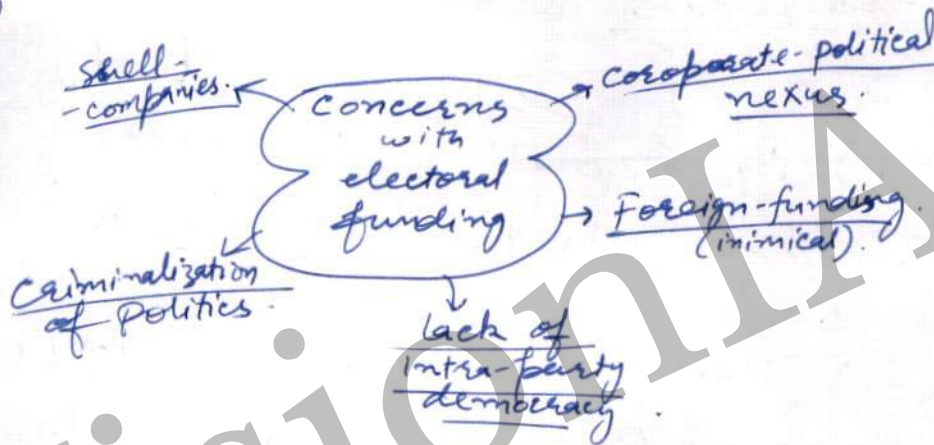 Shell-
-companies.
Concerns
with
electoral
funding
Coroporate-political
nexus.
Foreign-funding.
(inimical).
Criminalization
of Politics.
lack of
intra-party
democracy.
VisionIA